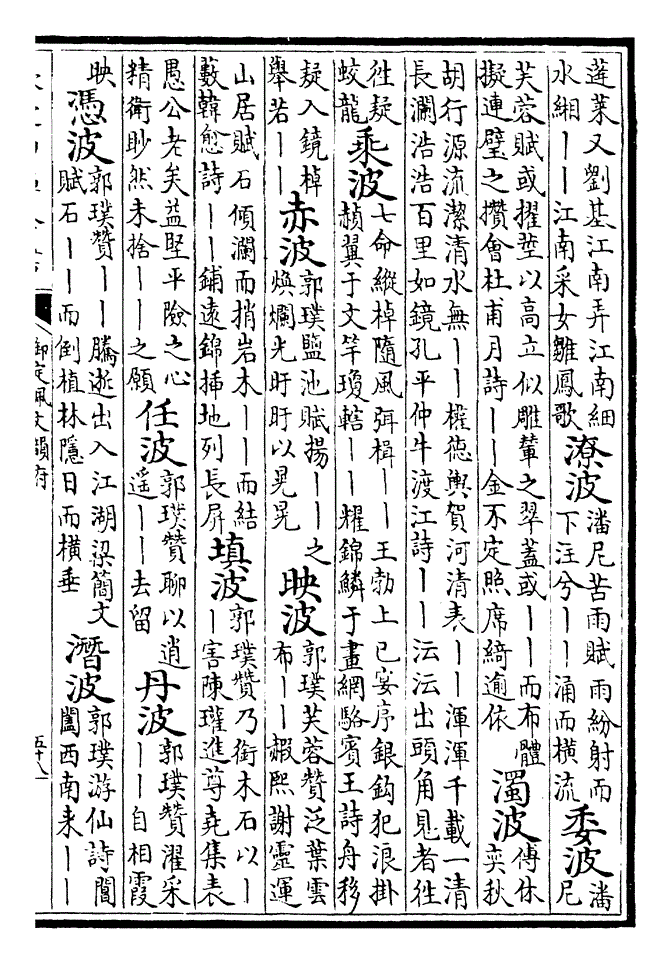 蓬莱又劉基江南弄江南細
水緗丨丨江南采女雛鳳歌
潦波
潘尼苦雨賦雨紛射而
下注兮丨丨涌而横流
委波
潘
尼
芙蓉賦或擢莖以高立似雕輦之翠蓋或丨丨而布體
擬連璧之攢會杜甫月詩丨丨金不定照席綺逾依
濁波
傅休
奕秋
胡行源流潔清水無丨丨權德輿賀河清表丨丨渾渾千載一清
長瀾浩浩百里如鏡孔平仲牛渡江詩丨丨沄沄出頭角見者徃
徃疑
蛟龍
乘波
七命縱棹隨風弭楫丨丨王勃上巳宴序銀鈎犯浪掛
頳翼于文竿瓊轄丨丨耀錦鱗于畫網駱賓王詩舟移
疑入鏡棹
舉若丨丨
赤波
郭璞鹽池賦揚丨丨之
煥爛光旴旴以晃晃
映波
郭璞芙蓉贊泛葉雲
布丨丨赮熙謝靈運
山居賦石傾瀾而捎岩木丨丨而結
藪韓愈詩丨丨鋪遠錦揷地列長屏
填波
郭璞贊乃銜木石以丨
丨害陳瓘進尊堯集表
愚公老矣益堅平險之心
精衛眇然未捨丨丨之願
任波
郭璞贊聊以逍
遥丨丨去留
丹波
郭璞贊濯采
丨丨自相霞
映
憑波
郭璞贊丨丨騰逝出入江湖梁簡文
賦石丨丨而倒植林隱日而横垂
潛波
郭璞游仙詩閶
闔西南来丨丨
御定佩文韻府